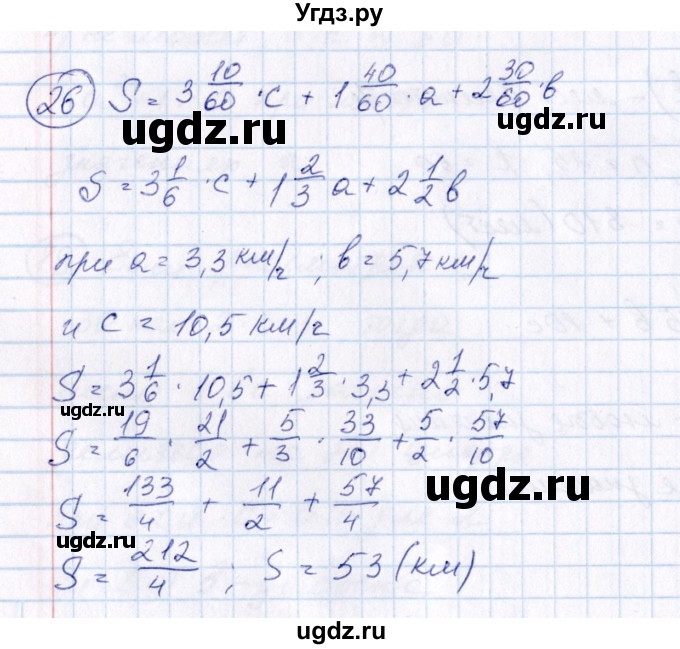 Угдз.ру
26 S = 3 10/60 · c + 1 40/60 · a + 2 30/60 · в
ugdz.ru
ugdz.ru
S = 3 1/6 · c + 1 2/3 a + 2 1/2 в
при a = 3,3 км/ч ; в = 5,7 км/ч
и c = 10,5 км/ч
S = 3 1/6 · 10,5 + 1 2/3 · 3,3 + 2 1/2 · 5,7
ugdz.ru
S = 19/6 · 21/2 + 5/3 · 33/10 + 5/2 · 57/10
ugdz.ru
S = 133/4 + 11/2 + 57/4
ugdz.ru
S = 212/4 ; S = 53 (км)
ugdz.ru